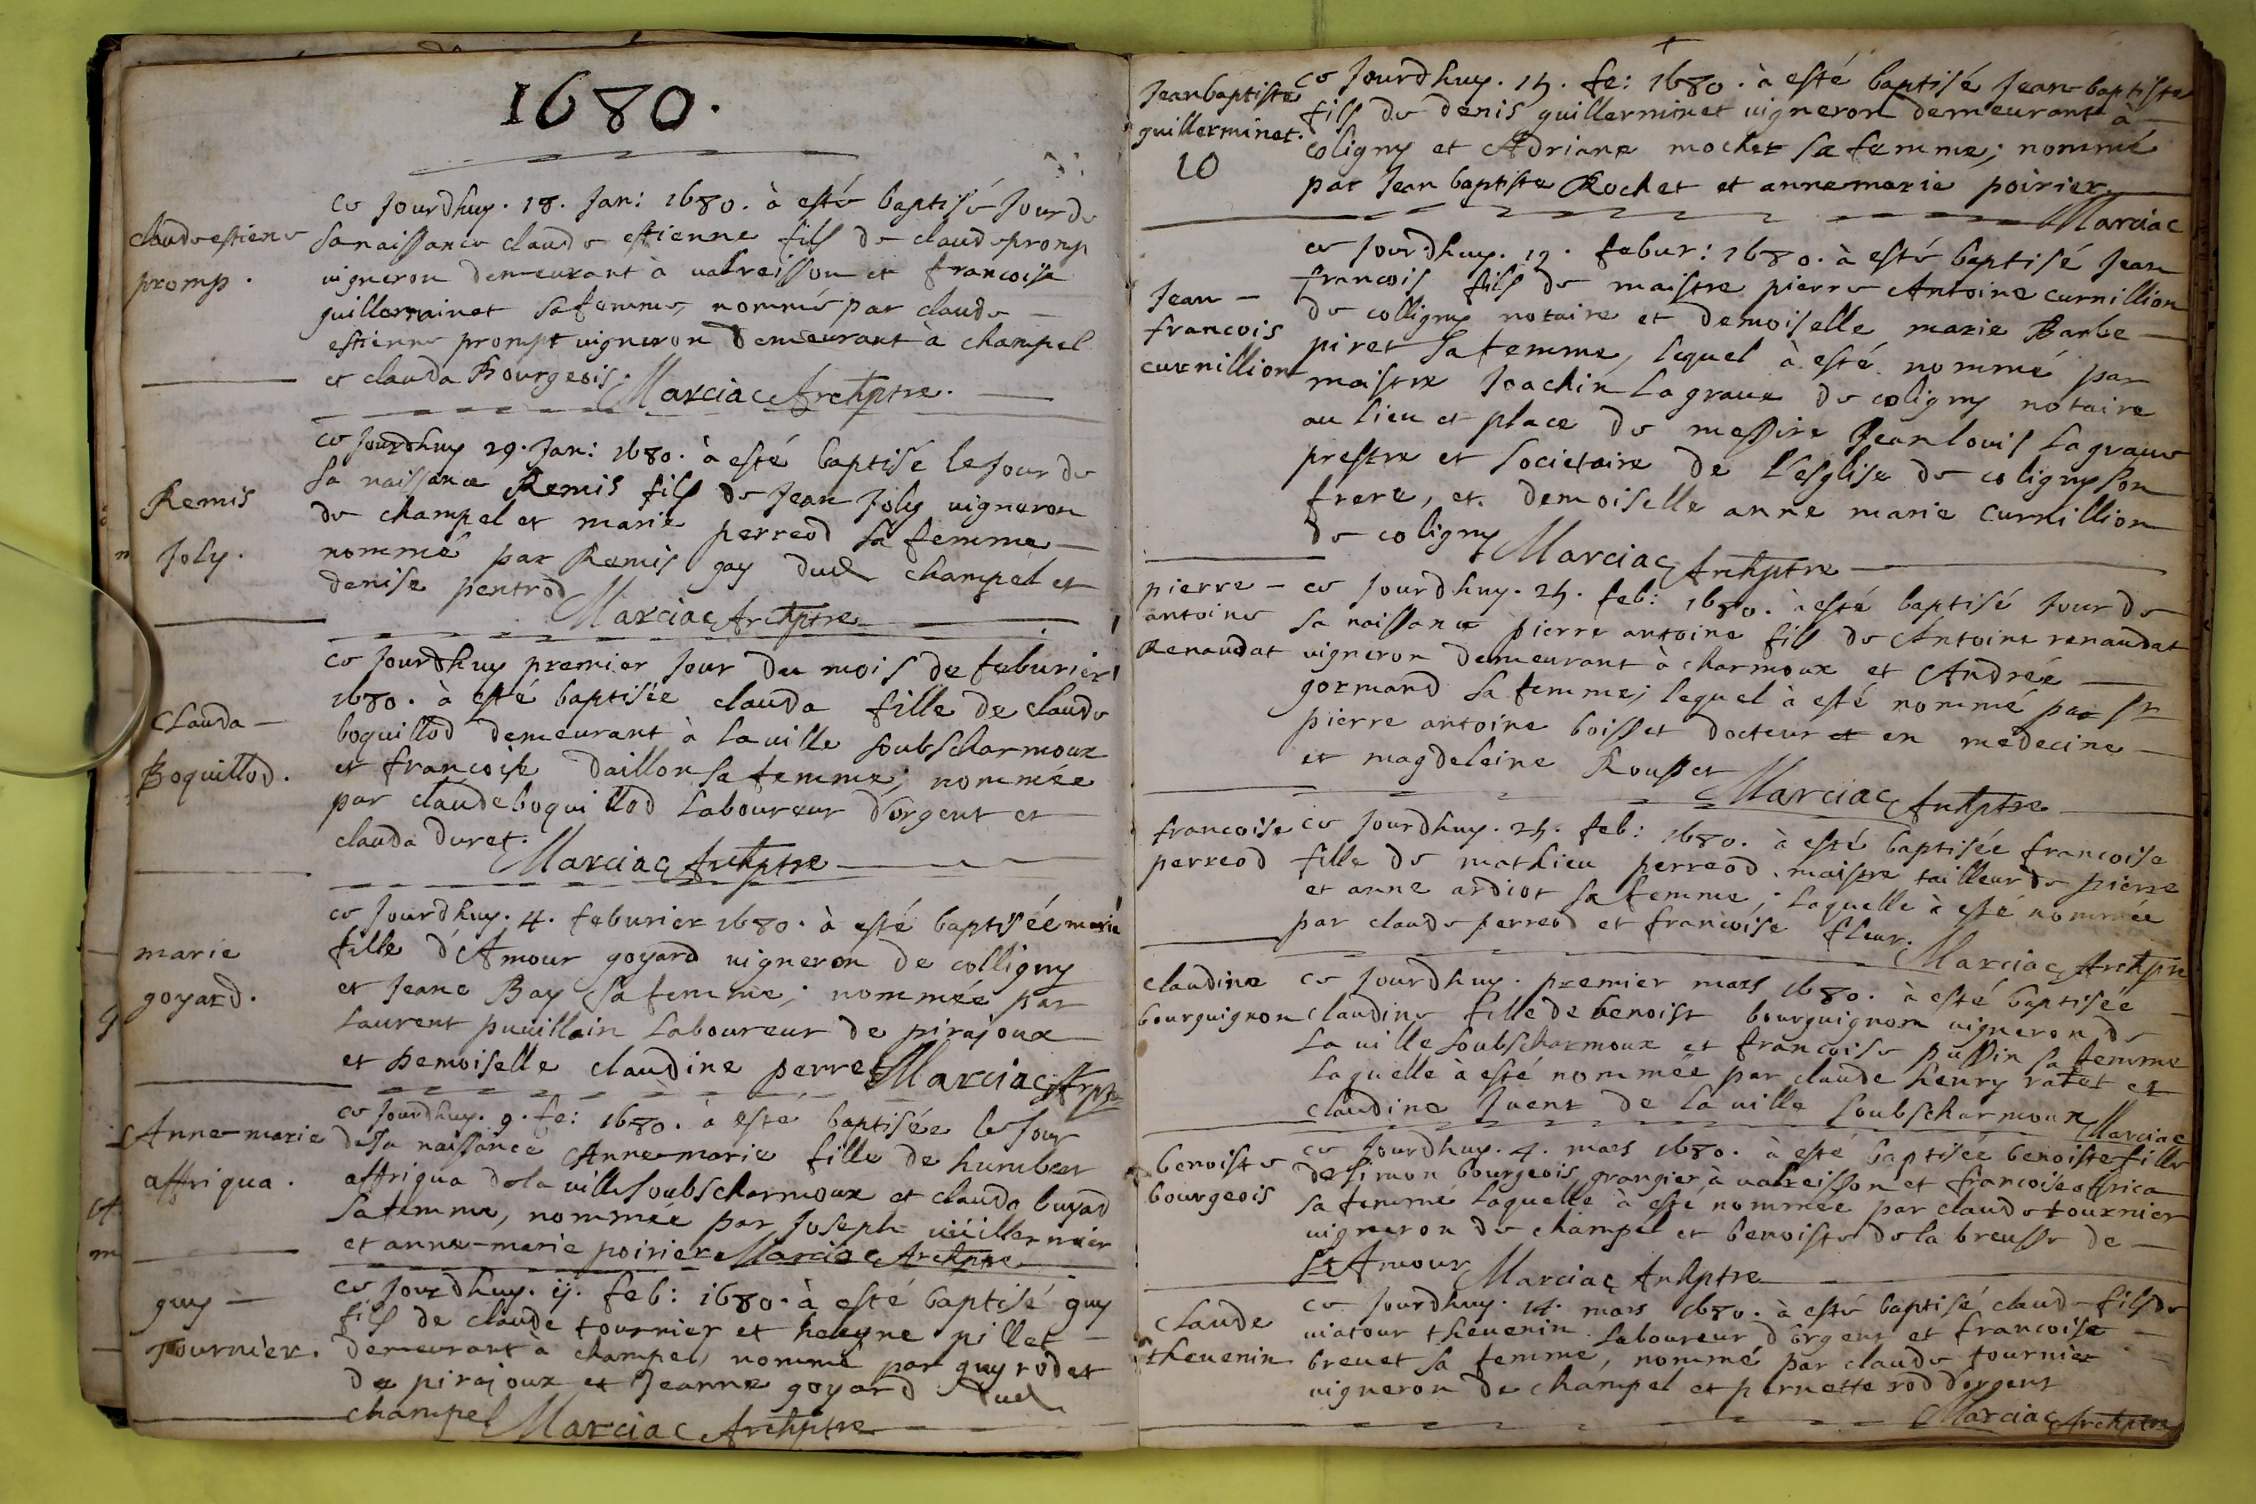 1680.
claude estiene
promp.
ce Jourdhuy. 18. Jan: 1680. à esté baptisé Jour de
sa naissance claude estienne fils de claude promp
vigneron demeurant à valreisson et francoise
guillerminet sa femme, nommé par claude
estienne prompt vigneron demeurant à champel
et clauda Bourgeois. Marciac Archptre.
Remis
Joly.
ce Jourdhuy 29. Jan: 1680. à esté baptisé le Jour de
sa naissance Remis fils de Jean Joly vigneron
de champel et marie perreod sa femme
nommé par Remis gay dud champel et
denise pentrod Marciac Archptre
Clauda
Boquillod.
ce Jourdhuy premier Jour du mois de feburier
1680. à esté baptisée clauda fille de claude
boquillod demeurant à la uille soubs charmoux
et francoise daillon sa femme; nommée
par claude boquillod Laboureur d'orgent et
clauda duret. Marciac Archptre
marie
goyard.
ce Jourdhuy. 4. feburier 1680. à esté baptisée marie
fille d'Amour goyard uigneron de colligny
et Jeane Bay sa femme; nommée par
Laurent puuillain Laboureur de pirajoux
et Demoiselle claudine perret Marciac Arptr
Anne-marie
affriqua.
ce Jourdhuy. 9. fe: 1680. à esté baptisée le Jour
de sa naissance Anne-marie fille de humbert
affriqua de la uille soubs charmoux et clauda buyard
sa femme, nommée par Joseph uüillermier
et anne-marie poirier Marciac Archptre
guy
Tournier.
ce Jourdhuy. ij. feb: 1680. à esté baptisé guy
fils de claude tournier et heleyne pillet
demeurant à champel, nommé par guy rodet
de pirajoux et Jeanne goyard dud
champel Marciac Archptre
Jean baptiste
guillerminet.
10
ce Jourdhuy. 15. fe: 1680. à esté baptisé Jean-baptiste
fils de denis guillerminet uigneron demeurant à
coligny et Adriane mochet sa femme; nommé
par Jean baptiste Rochet et anne marie poirier
Marciac
Jean
francois
curnillion
ce Jourdhuy. 19. febur: 1680. à esté baptisé Jean
francois fils de maistre pierre Antoine curnillion
de colligny notaire et demoiselle marie Barbe
piret sa femme, lequel à esté nommé par
maistre Joachin Lagraue de coligny notaire
au lieu et place de messire Jean louis Lagraue
prestre et societaire de l'esglise de coligny son
frere, et demoiselle anne marie Curnillion
de coligny Marciac Archptre
pierre
antoine
Renaudat
ce Jourdhuy. 25. feb: 1680. à esté baptisé Jour de
sa naissance pierre antoine fils de Antoine renaudat
uigneron demeurant à charmoux et Andrée
gormand sa femme; lequel à esté nommé par sr
pierre antoine boisset docteur et en medecine
et magdeleine Rousset Marciac Archptre
francoise
perreod
ce Jourdhuy. 25. feb: 1680. à esté baptisée francoise
fille de mathieu perreod maistre tailleur de pierre
et anne ardiot sa femme; laquelle à esté nommée
par claude perreod et francoise fleur. Marciac Archptre
claudine
bourguignon
ce Jourdhuy. premier mars 1680. à esté baptisée
claudine fille de benoist bourguignon uigneron de
La uille soubs charmoux et francoise pussin sa femme
Laquelle à esté nommée par claude henry ratet et
claudine Juent de La uille soubs charmoux Marciac
benoiste
bourgeois
ce Jourdhuy. 4. mars 1680. à esté baptisée benoiste fille
de Simon bourgeois grangier à valreisson et francoise affrica
sa femme Laquelle à esté nommée par claude tournier
uigneron de champel et benoiste de la breusse de
St Amour Marciac Archptre
Claude
theuenin
ce Jourdhuy. 14. mars 1680. à esté baptisé claude fils de
uiatour theuenin Laboureur d'orgent et francoise
breuet sa femme, nommé par claude tournier
uigneron de champel et pernette rod dorgent
Marciac Archptre